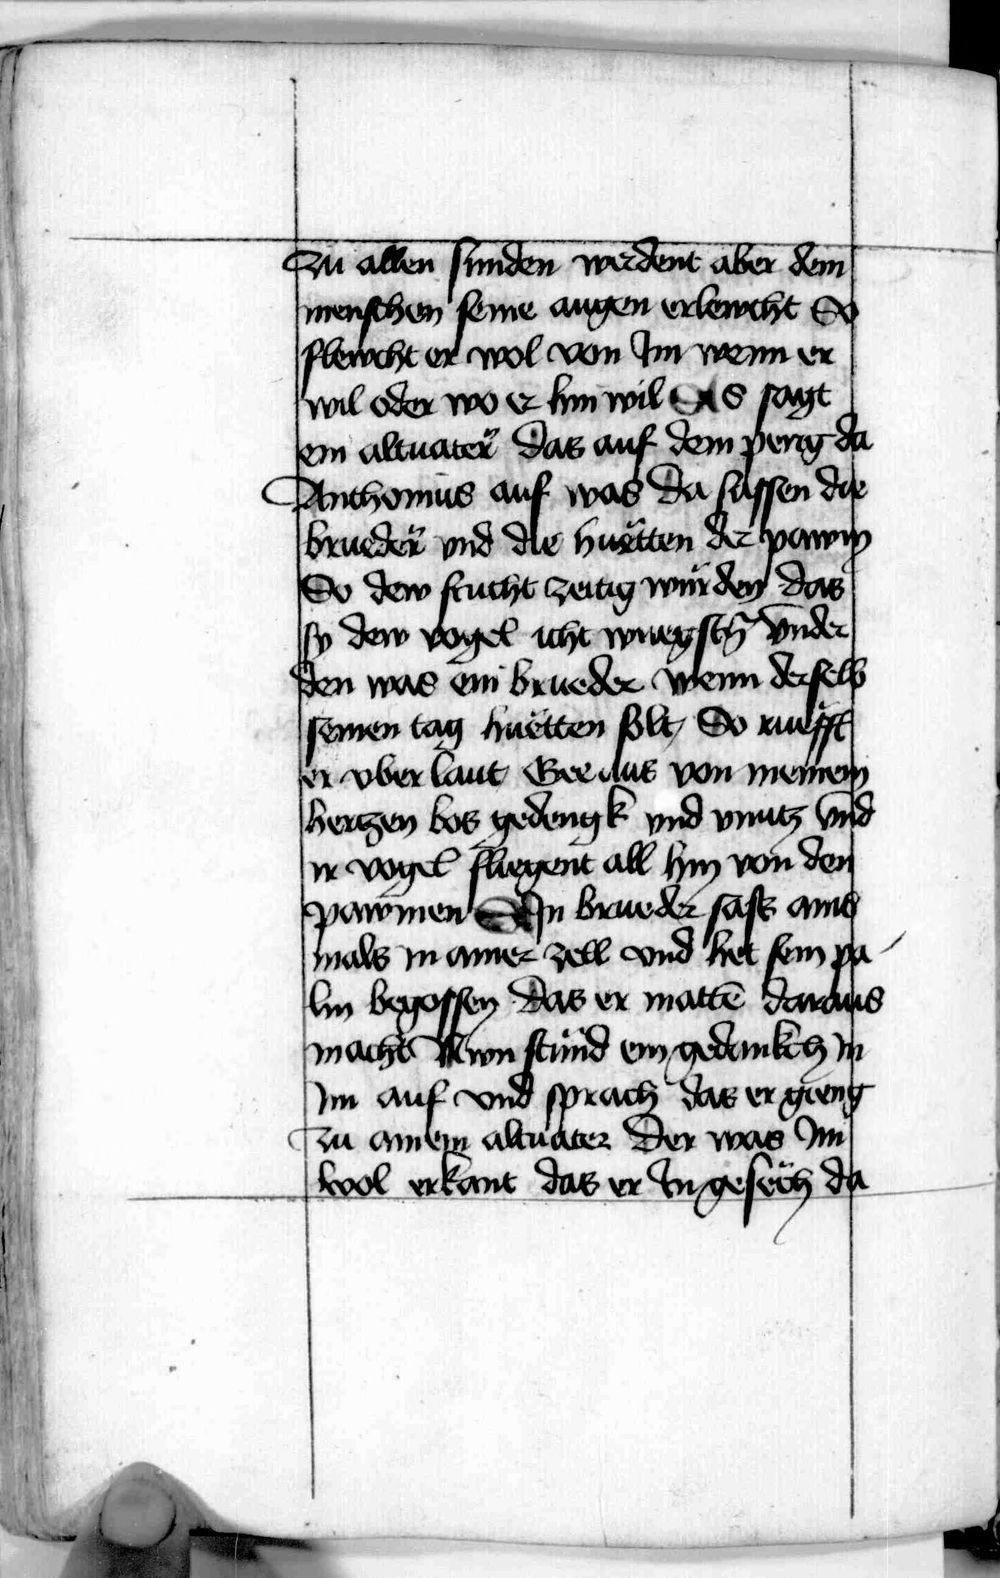 Zu allen sunden werdent aber dem
menschen seine augen erlewcht So
flewcht er wol von Im wenn er
wil oder wo er hin wil Es sagt
ein altuater das auf dem perig da
Anthonius auf was da sassen die
brueder vnd die huetten der pawm
So dew frucht zeitig wurden das
sy dew vogel icht wuegstn̄ Vnder
den was ein brueder wenn derselb
seinen tag huetten solt So ruefft
er vber laut Gee aus von meinem
hertzen bos gedengk vnd vnutz vnd
ir vogel fliegent all hin von den
pawmen Ein brueder sass ains
mals in ainer zell vnd het sein pa
lm begossen das er mattē daraus
macht Nwn stund ein gedankch in
Im auf vnd sprach das er gieng
Zu ainem altuater der was Im
wol erkant das er In gesech da